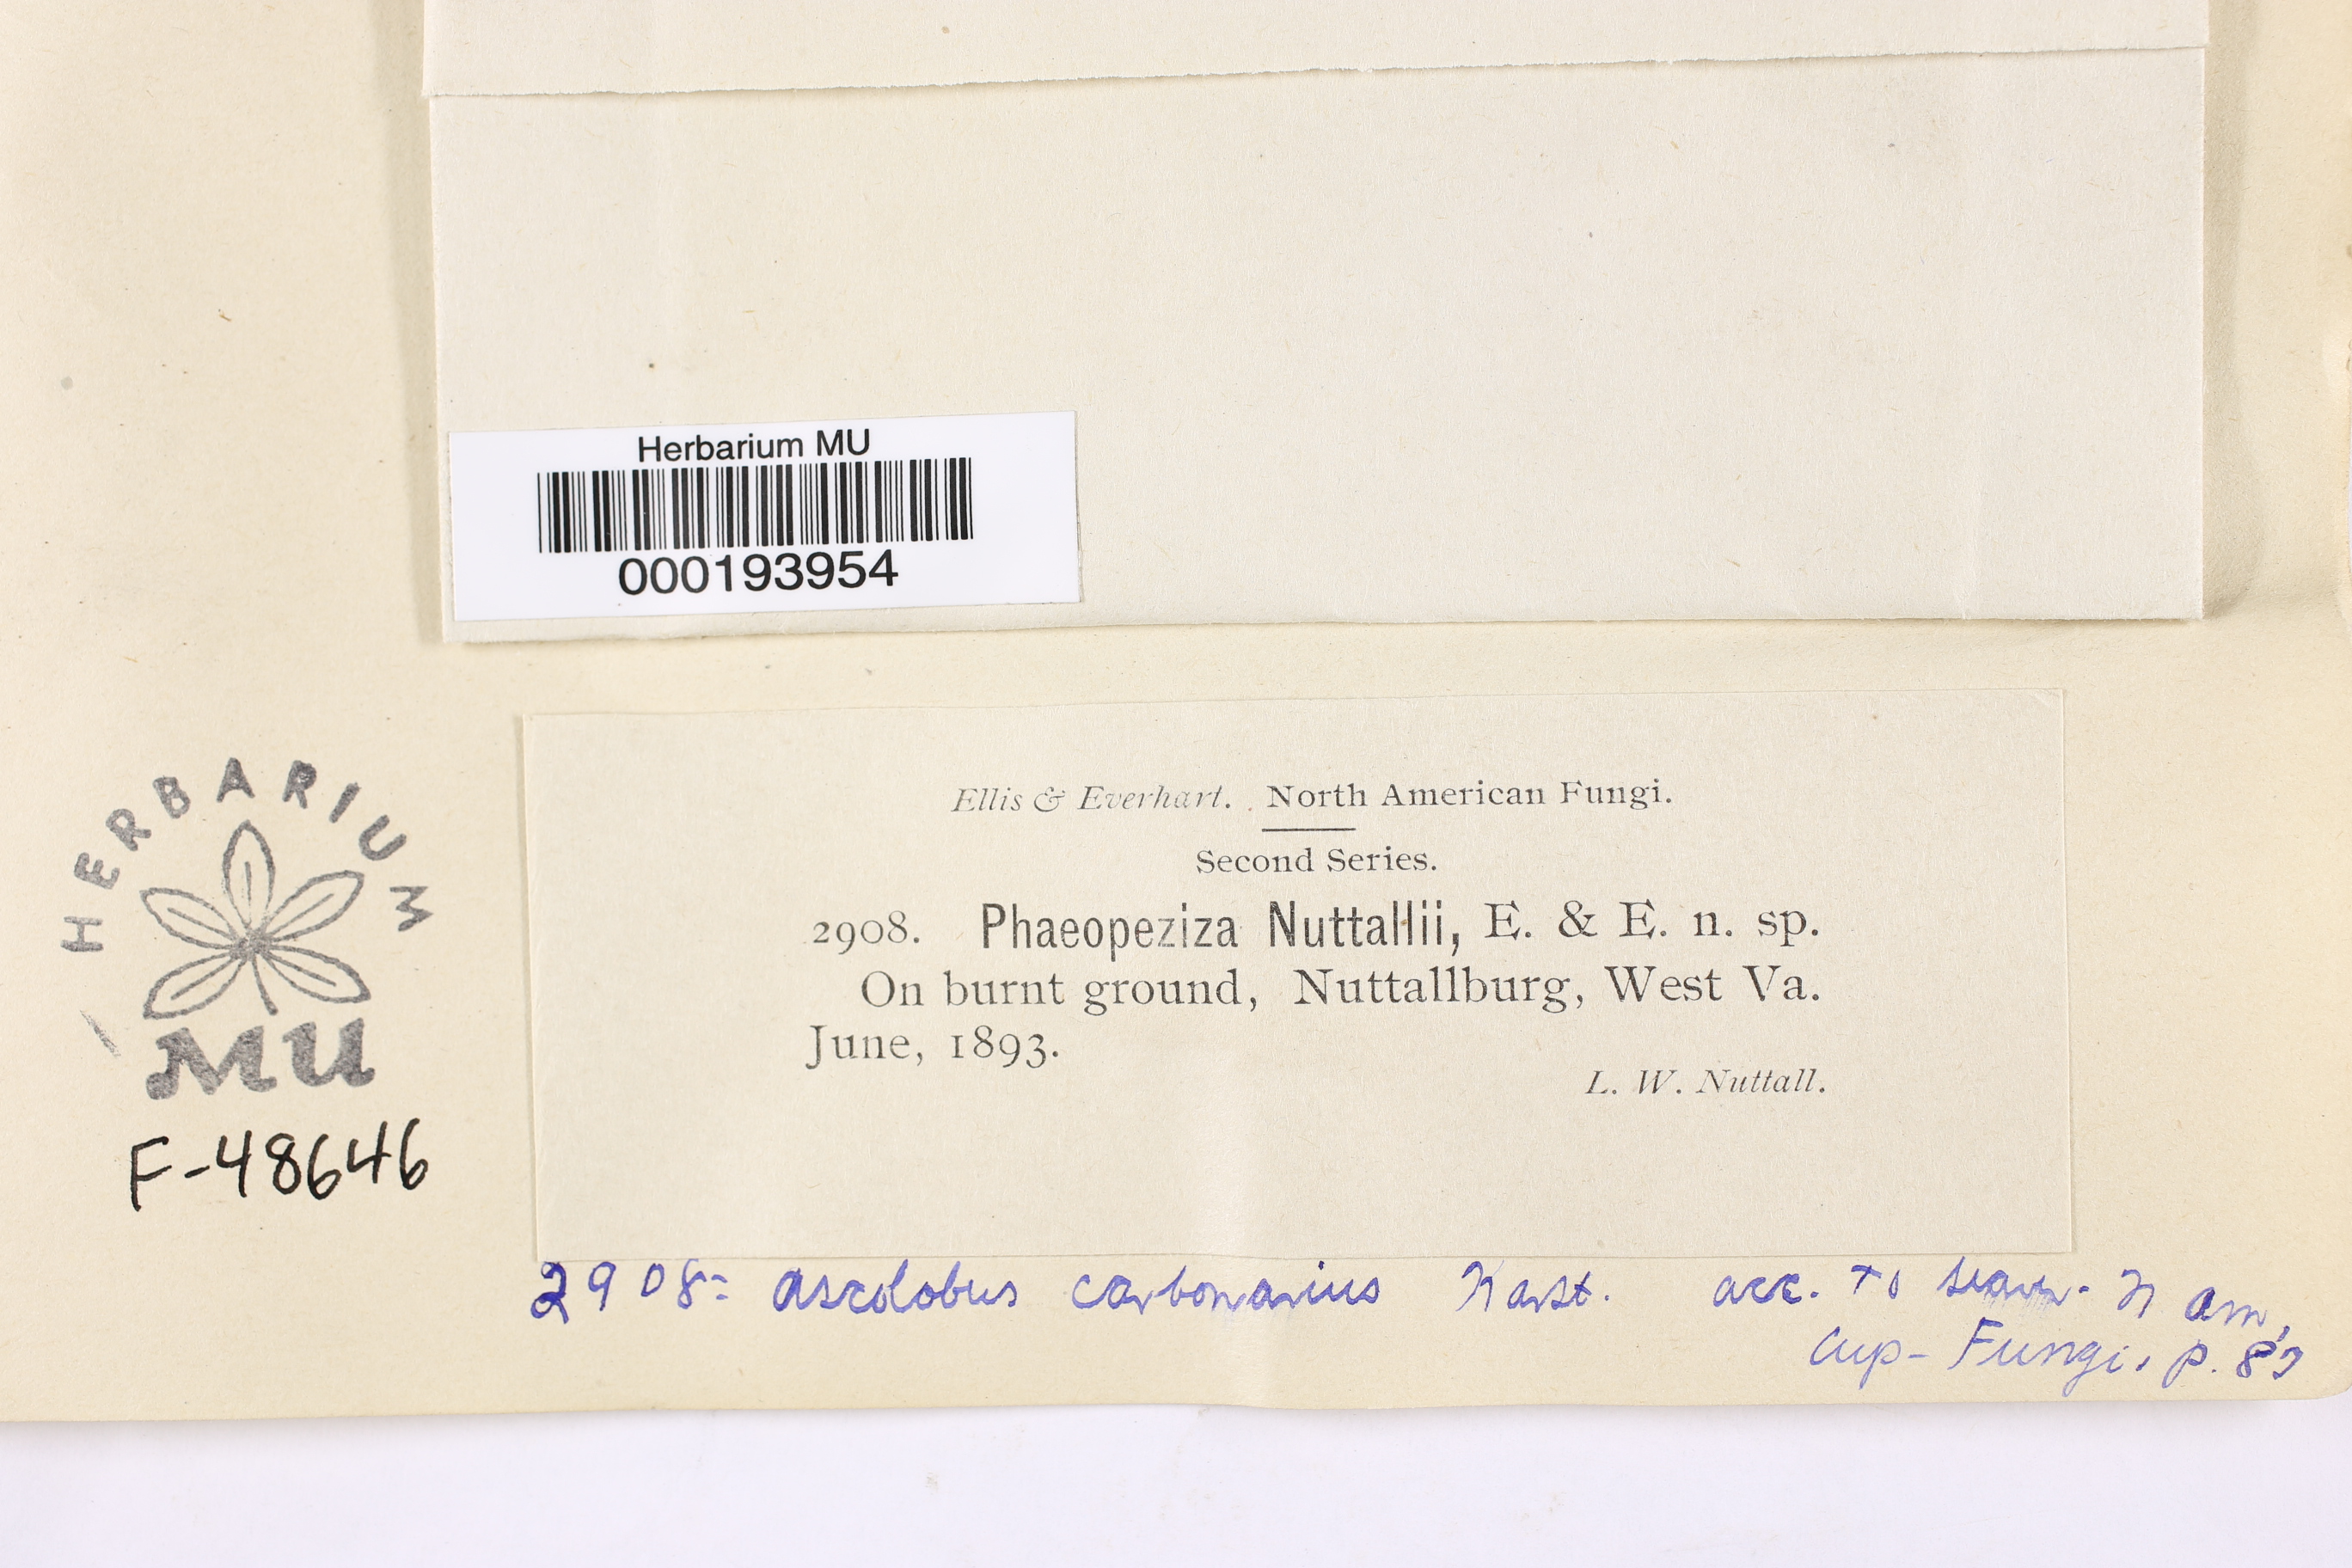 Herbarium MU
000193954
HERBARIUM
MU
F-48646
Ellis & Everhart. North American Fungi.
Second Series.
2908. Phaeopeziza Nuttallii, E. & E. n. sp.
On burnt ground, Nuttallburg, West Va.
June, 1893.
L. W. Nuttall.
2908= Ascolobus carbonarius Karst. acc. to Seaver- N Am,
Cup-Fungi, p.